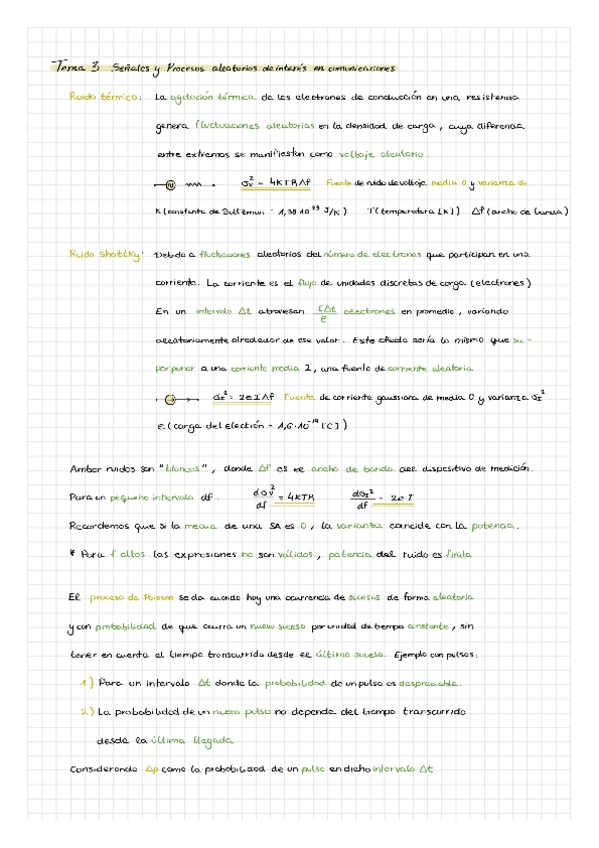 Tema 3 Señales y Procesos aleatorios de interés en comunicaciones
Ruido térmico: La agitación térmica de los electrones de conducción en una resistencia
genera fluctuaciones aleatorias en la densidad de carga, cuya diferencia
entre extremos se manifiestan como voltaje aleatorio.
σv² = 4KTRΔf Fuente de ruido de voltaje media 0 y varianza σv
K(constante de Boltzman = 1,38·10⁻²³ J/K) T(temperatura [K]) Δf(ancho de banda)
Ruido shottky: Debido a fluctuaciones aleatorias del número de electrones que participan en una
corriente. La corriente es el flujo de unidades discretas de carga (electrones)
En un intervalo Δt atraviesan IΔt/e electrones en promedio, variando
aleatoriamente alrededor de ese valor. Este efecto sería lo mismo que su-
perponer a una corriente media I, una fuente de corriente aleatoria
σI² = 2eIΔf Fuente de corriente gaussiana de media 0 y varianza σI²
e(carga del electrón = 1,6·10⁻¹⁹ [C])
Ambos ruidos son "blancos", donde Δf es el ancho de banda del dispositivo de medición.
Para un pequeño intervalo df. dσv²/df = 4KTR dσI²/df = 2eI
Recordemos que si la media de una SA es 0, la varianza coincide con la potencia.
* Para f altos las expresiones no son válidas, potencia del ruido es finita
El proceso de Poisson se da cuando hay una ocurrencia de sucesos de forma aleatoria
y con probabilidad de que ocurra un nuevo suceso por unidad de tiempo constante, sin
tener en cuenta el tiempo transcurrido desde el último suceso. Ejemplo con pulsos:
1.) Para un intervalo Δt donde la probabilidad de un pulso es despreciable.
2.) La probabilidad de un nuevo pulso no depende del tiempo transcurrido
desde la última llegada
Considerando Δp como la probabilidad de un pulso en dicho intervalo Δt